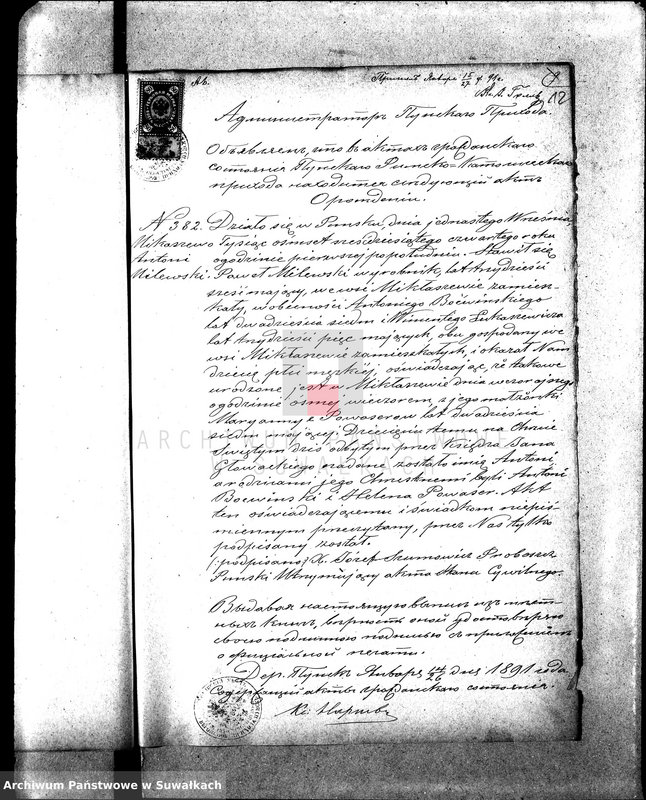 12
Администраторъ Пунскаго Прихода.
Объявляетъ, что въ актахъ гражданскаго
состоянія Пунскаго Римско-Католическаго
прихода находится слѣдующій актъ
О рожденіи.
N 382. Działo się w Puńsku, dnia jednastego Września,
Mikłaszewo Tysiąc ośmset sześćdziesiątego czwartego roku
Antoni o godzinie pierwszej popołudniu. Stawił się
Milewski. Paweł Milewski wyrobnik, lat trzydzieści
sześć mający, we wsi Mikłaszewie zamiesz-
kały, w obecności Antoniego Boćwinskiego
lat dwadzieścia siedm i Wincentego Łukaszewicza
lat trzydzieści pięć mających, obu gospodarzy we
wsi Mikłaszewie zamieszkałych, i okazał Nam
dziecię płci męzkiej, oświadczając, że takowe
urodzone jest w Mikłaszewie dnia wczorajszego
o godzinie ósmej wieczorem, z jego małżonki
Maryanny z Powaserow lat dwadzieścia
siedm mającej. Dziecięciu temu na Chrzcie
Świętym dziś odbytym przez Księdza Jana
Głowackiego nadane zostało imię Antoni
a rodzicami jego Chrzestnemi byli Antoni
Boćwinski i Helena Powaser. Akt
ten oświadczającemu i świadkom niepiś-
miennym przeczytany, przez Nas tylko
podpisany został.
(:podpisano:) X. Józef Szumowicz Proboszcz
Punski Utrzymujący akta Stanu Cywilnego.
Выдавая настоящую выпись изъ
ныхъ книгъ, вѣрность оной удостовѣряю
своею подписью съ приложеніемъ
оффиціальной печати.
Дер. Пунскъ Января 14/26 дня 1891 года
Содержащій акты гражданскаго состоянія.
ARCHIWUM PAŃSTWOWE
W SUWAŁKACH
Archiwum Państwowe w Suwałkach